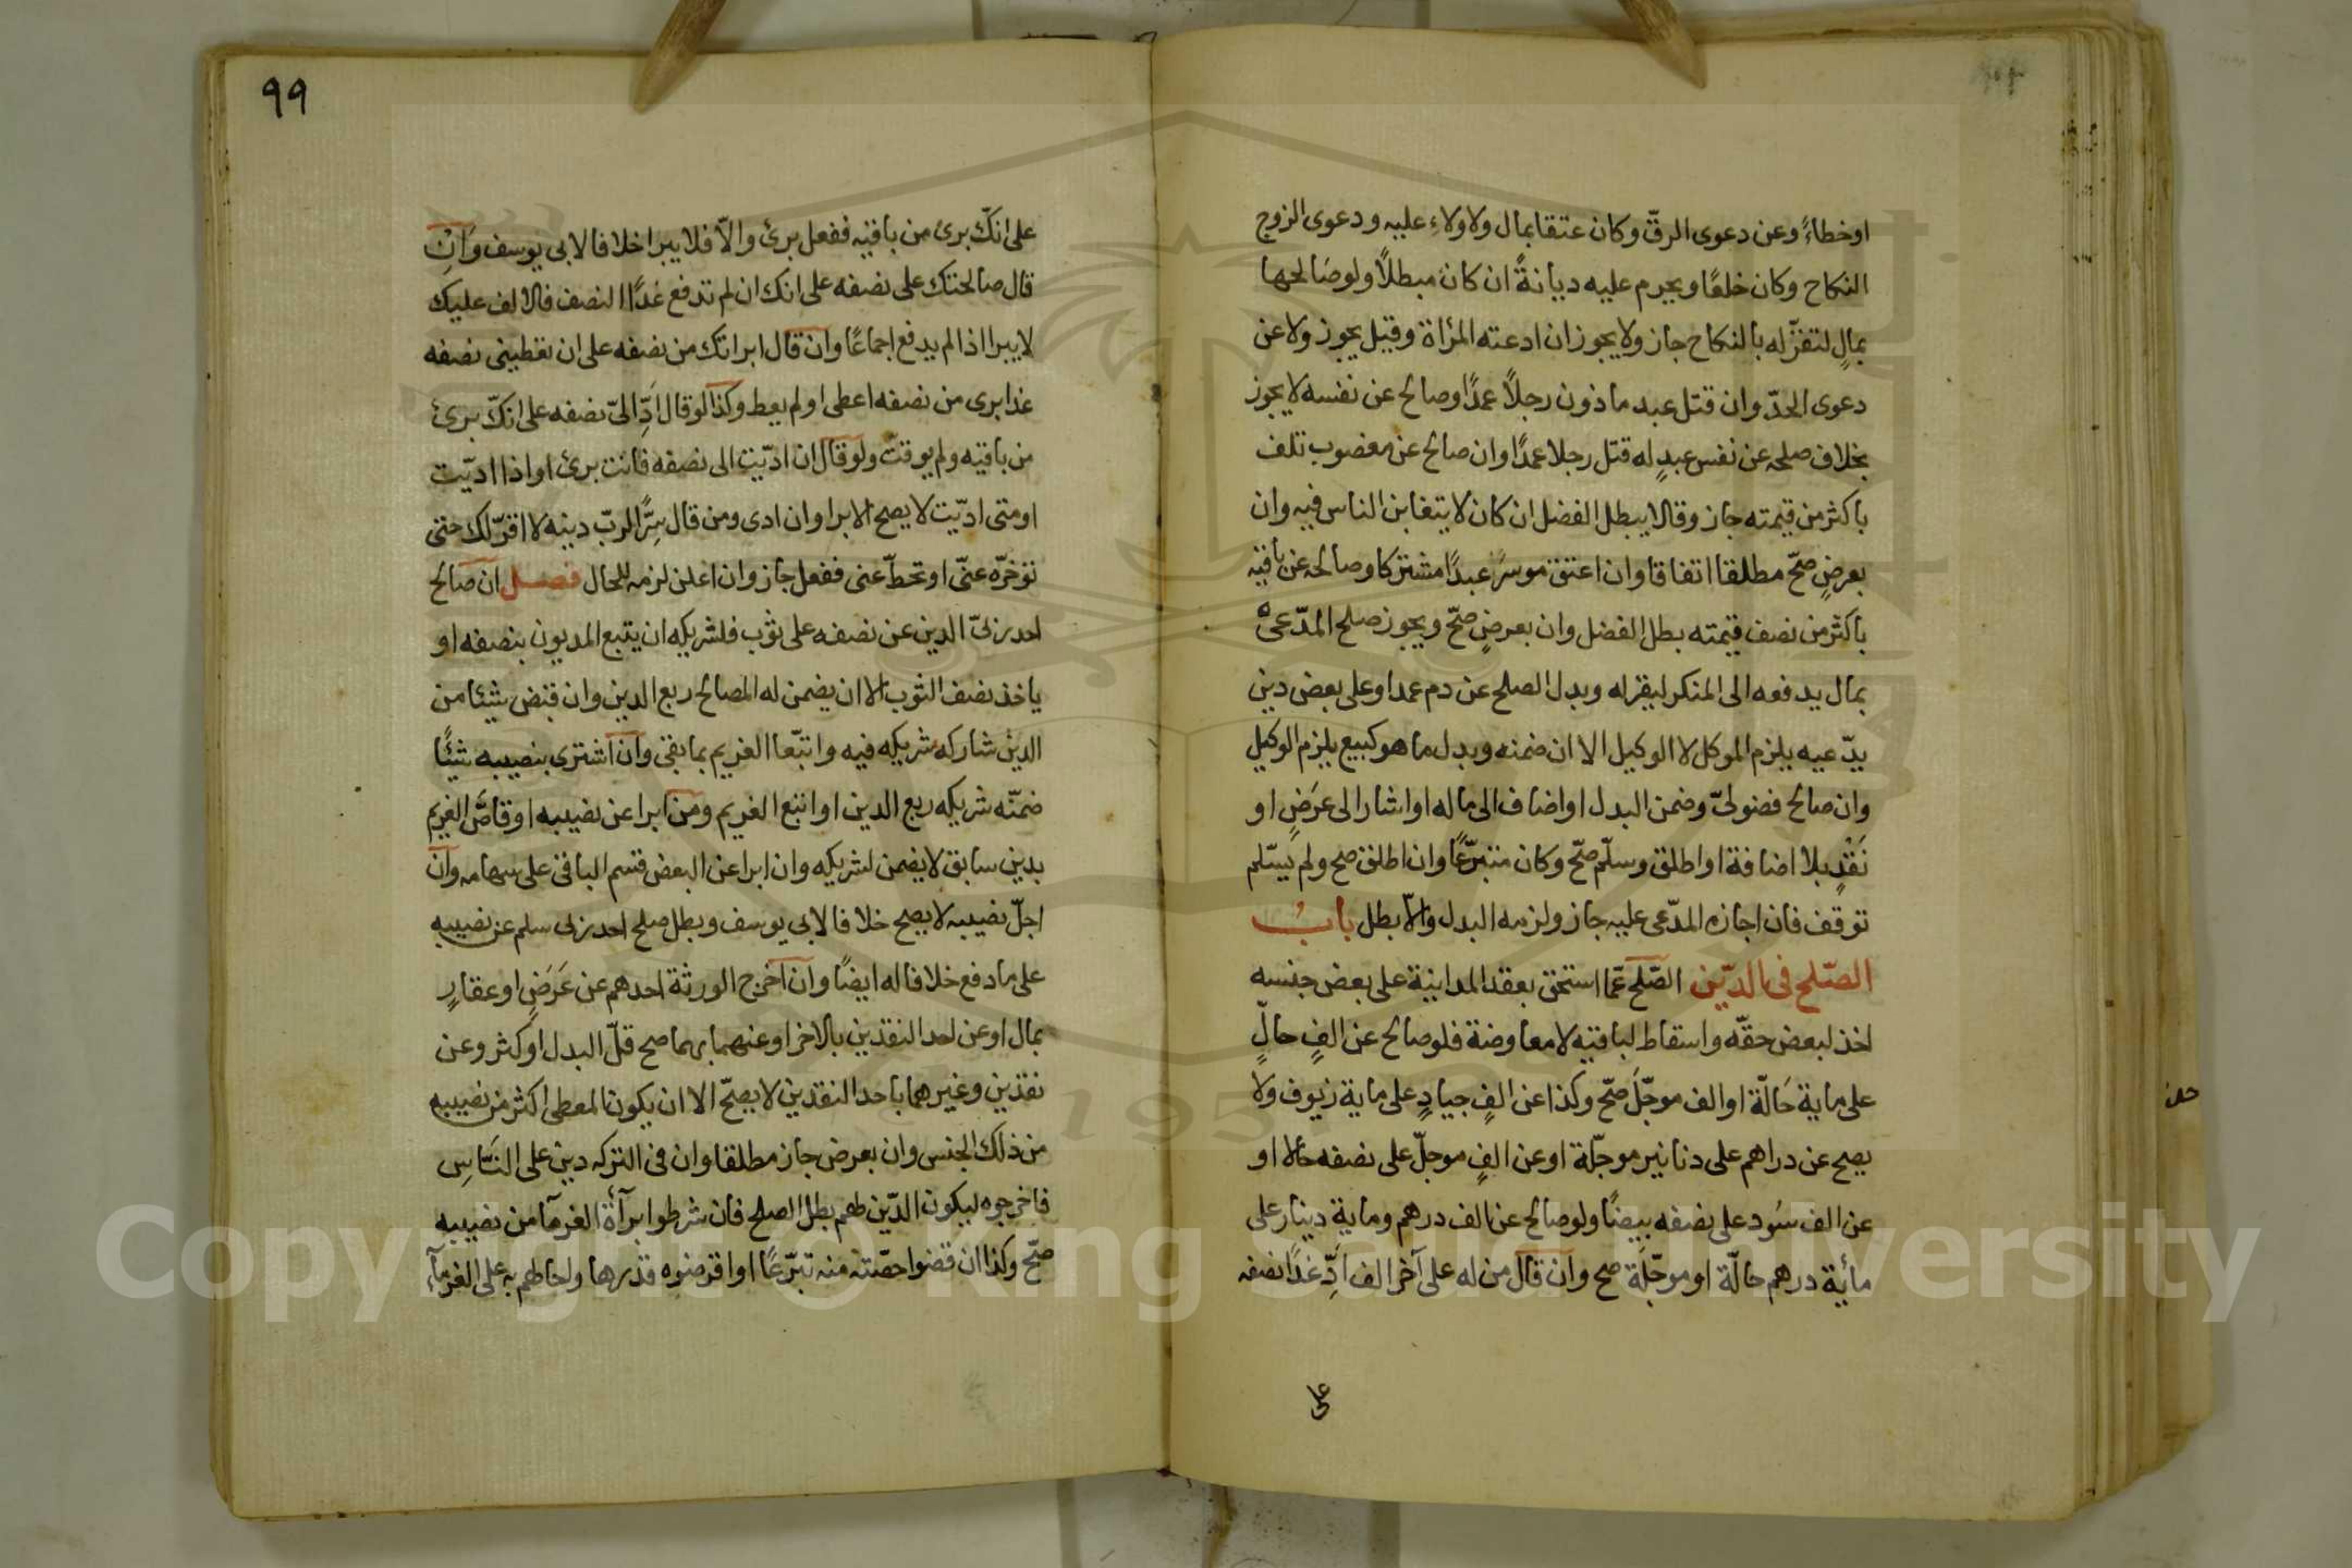 اوخطاءً وعن دعوى الرقّ وكان عتقا بمال ولا ولاءِ عليه ودعوى الزوج
النكاح وكان خلعًا ويحرم عليه ديانةً ان كان مبطلًا ولو صَالحها
بمالٍ لتقرّ له بالنكاح جاز ولا يجوز ان ادعته المرأة وقيل يجوز ولا عن
دعوى الحدّ وان قتل عبد ماذون رجلًا عمدًا وصالح عن نفسه لا يجوز
بخلاف صلحه عن نفس عبدٍ له قتل رجلا عمدًا وان صالح عن مغصوب تلف
باكثر من قيمته جاز وقالا يبطل الفضل ان كان لا يتغابن الناس فيه وان
بعرضٍ صحّ مطلقا اتفاقا وان اعتق موسرٌ عبدًا مشتركا وصالحه عن باقيه
باكثر من نصف قيمته بطل الفضل وان بعرضٍ صحّ ويجوز صلح المدّعى
بمال يدفعه الى المنكر ليقرله وبدل الصلح عن دم عمد او على بعض دين
يدّعيه يلزم الموكل لا الوكيل الا ان ضمنه وبدل ما هو كبيع يلزم الوكيل
وان صالح فضوليّ وضمن البدل او اضاف الى ماله او اشار الى عرَضٍ او
نَقْدٍ بلا اضافة او اطلق وسلّم صحّ وكان متبرّعًا وان اطلق صح ولم يَسّلم
توقف فان اجازه المدّعى عليه جاز ولزمه البدل والّا بطل بابُ
الصّلح في الدّين الصّلح عمّا استحق بعقد المداينة على بعض جنسه
اخذ لبعض حقّه واسقاط لباقيه لا معاوضة فلو صالح عن الفٍ حالٍّ
على ماية حَالّة او الف موجّلَ صحّ وكذا عن الفٍ جيادٍ على ماية زيوف ولا
يصح عن دراهم على دنانير موجّلة او عن الفٍ موجلّ على نصفه حالا او
عن الف سُود على نصفه بيضًا ولو صالح عن الف درهم وماية دينار على
مأية درهم حالّة او موجّلَة صح وان قال من له على آخر الف اَدِّ غدًا نصفه
على
٩٩
على انكّ برئ من باقيه ففعل برئ والّا فلا يبرا خلافا لابى يوسف وَانِْ
قال صالحتك على نصفه على انك ان لم تدفع غدًا النصف فالالف عليك
لا يبرا اذا لم يدفع اجماعًا وان قال ابراتك من نصفه على ان تعطينى نصفه
غدا برى من نصفه اعطى او لم يعط وكذا لو قال ادِّ الىّ نصفه على انكّ برئ
من باقيه ولم يوقت ولو قال ان ادّيت الى نصفه فانت برئ او اذا اديّت
او متى ادّيت لا يصح الابرا وان ادى ومن قال سِرًّا لربّ دينه لا اقرّلك حتى
تؤخرّه عنّى او تحطّ عنى ففعل جاز وان اعلن لزمه للحال فصل ان صالح
احد ربىّ الدين عن نصفه على ثوب فلشريكه ان يتبع المديون بنصفه او
ياخذ نصف الثوب الا ان يضمن له المصالح ربع الدين وان قبض شيئا من
الدين شاركه شريكه فيه واتبّعا الغريم بما بقى وان اشترى بنصيبه شيئًا
ضمّنه شريكه ربع الدين او اتبع الغريم ومن ابرا عن نصيبه او قاصَّ الغريم
بدين سابق لا يضمن لشريكه وان ابرا عن البعض قسم الباقى على سهامه وان
اجلّ نصيبه لا يصح خلافا لابى يوسف وبطل صلح احد ربى سلم عن نصيبه
على ما دفع خلافا له ايضًا وان اخرج الورثة احدهم عن عَرَضٍ او عقارٍ
بمال او عن احد النقدين بالاخر او عنهما بهما صح قلّ البدل او كثر وعن
نقدين وغيرهما باحد النقدين لا يصحّ الا ان يكون المعطى اكثر من نصيبه
من ذلك الجنس وان بعرض جاز مطلقا وان فى التركه دين على النَّاسِ
فاخرجوه ليكون الدّين لهم بطل الصلح فان شرطوا برآأة الغرمآ من نصيبه
صحّ وكذا ان قضوا حصّته منه تبرّعًا او اقرضوه قدرها واحالهم به على الغرمآءِ
Copyright © King Saud University